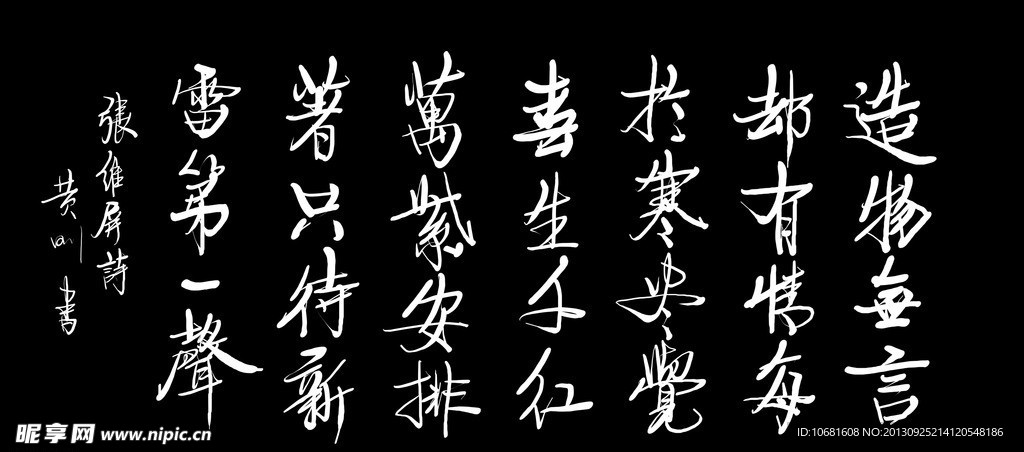 造物無言
却有情每
於寒尽覺
春生千红
萬紫安排
著只待新
雷第一聲
張維屏詩
黄刚書
昵享网 www.nipic.cn
ID:10681608 NO:20130925214120548186